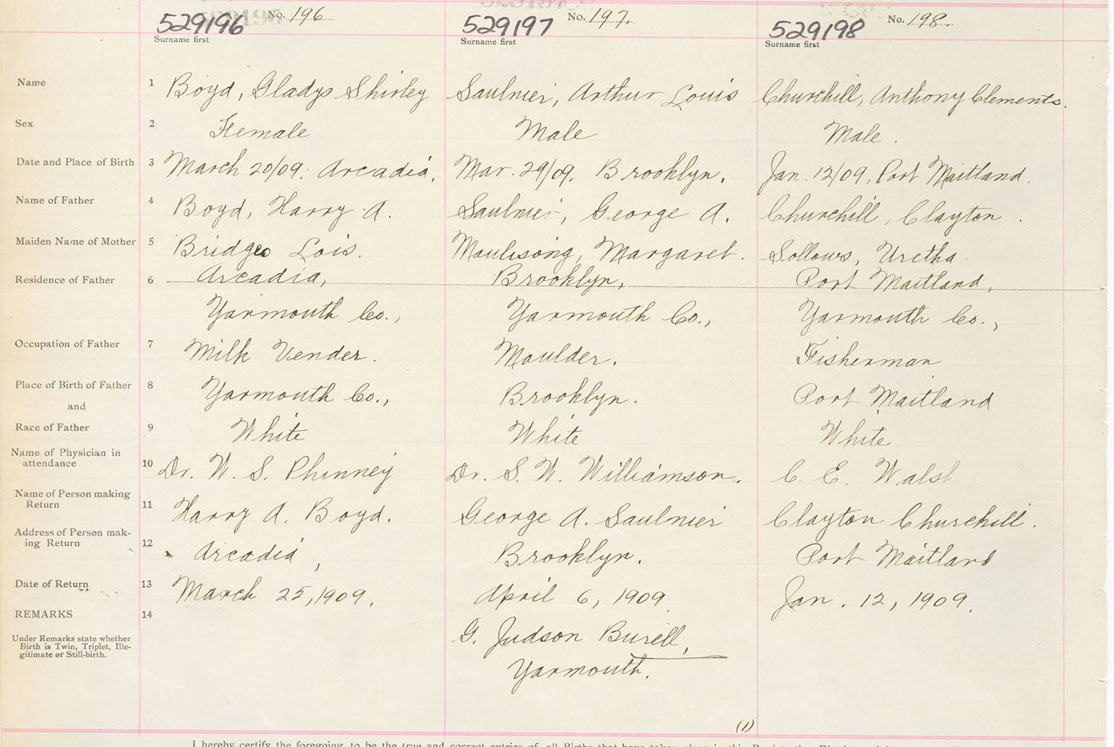 529196 No. 196. 529197 No. 197. 529198 No. 198.
Surname first Surname first Surname first
Name 1 Boyd, Gladys Shirley Saulnier, Arthur Louis Churchill, Anthony Clements.
Sex 2 Female Male Male.
Date and Place of Birth 3 March 20/09. Arcadia. Mar. 29/09. Brooklyn. Jan. 12/09, Port Maitland.
Name of Father 4 Boyd, Harry A. Saulnier, George A. Churchill, Clayton.
Maiden Name of Mother 5 Bridges Lois. Margaret. Sollows, Uretha.
Residence of Father 6 Arcadia, Brooklyn, Port Maitland,
Yarmouth Co., Yarmouth Co., Yarmouth Co.,
Occupation of Father 7 Milk Vender. Moulder. Fisherman
Place of Birth of Father 8 Yarmouth Co., Brooklyn. Port Maitland
and
Race of Father 9 White White White
Name of Physician in
attendance 10 Dr. W. S. Phinney Dr. S. W. Williamson. C. E. Walsh
Name of Person making
Return 11 Harry A. Boyd. George A. Saulnier Clayton Churchill.
Address of Person mak-
ing Return 12 Arcadia, Brooklyn. Port Maitland
Date of Return 13 March 25, 1909. April 6, 1909. Jan. 12, 1909.
REMARKS 14
Under Remarks state whether
Birth is Twin, Triplet, Ille-
gitimate or Still-birth.
G. Judson Burell,
Yarmouth.
(1)
I hereby certify the foregoing to be the true and correct entries of all Births that have taken place in this Registration